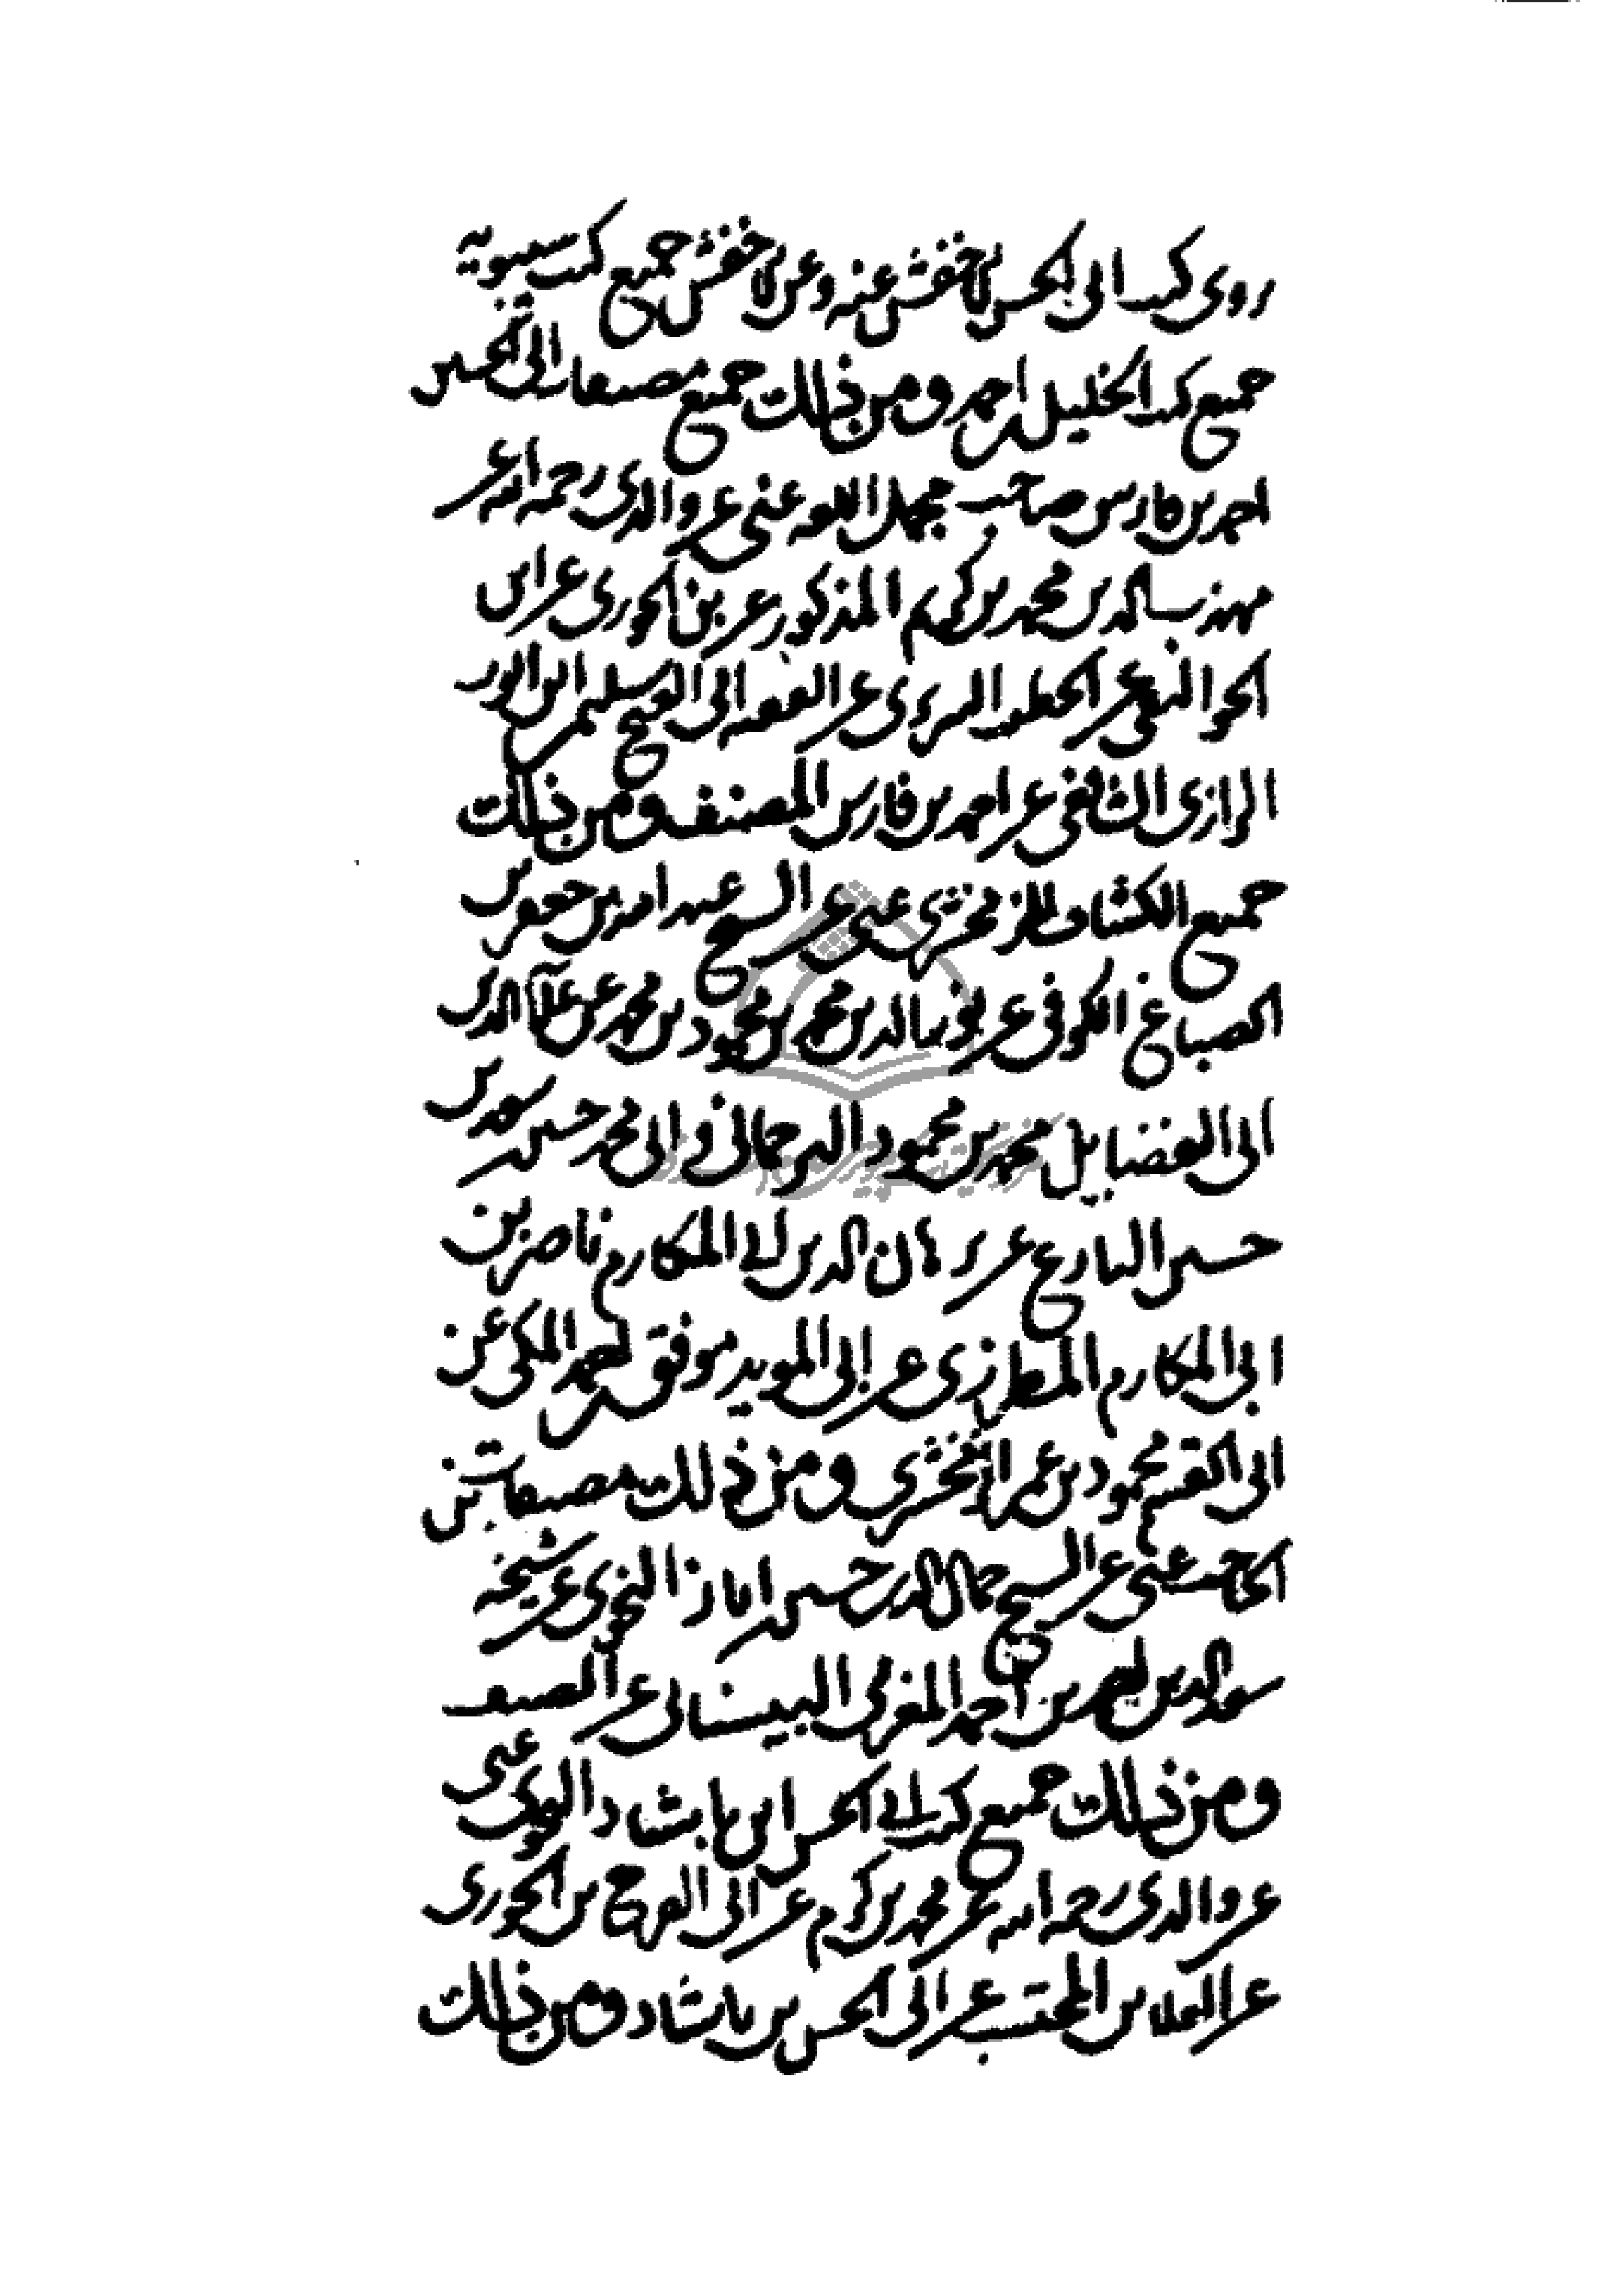 روى كتب ابى الحسن الاخفش عنه وعن الاخفش جميع كتب سيبويه
جميع كتب الخليل بن احمد ومن ذلك جميع مصنفات ابى الحسين
احمد بن فارس صاحب مجمل اللغه عنى عن والدى رحمه الله عن
مهذب الدين محمد بن كرم المذكور عن بن الجوزى عن ابن
الجواليقى عن الخطيب التبريزى عن الفقيه ابى الفتح سليم بن ايوب
الرازى الشافعى عن احمد بن فارس المصنف ومن ذلك
جميع الكشاف للزمخشرى عنى عن الشيخ عبد الله بن جعفر بن
الصباغ الكوفى عن محمد بن محمود بن محمد عن علاء الدين
ابى الفضايل محمد بن محمود الترجمانى وابى محمد حسن سعد بن
حسين البارع عن برهان الدين ابى المكارم ناصر بن
ابى المكارم المطرزى عن ابى المويد موفق بن احمد المكى عن
ابى القسم محمود بن عمر الزمخشرى ومن ذلك مصنفات بن
الحاجب عنى عن الشيخ جمال الدين حسين بن اياز النحوى عن شيخه
سعد الدين احمد بن احمد المغربى البيسانى عن المصنف
ومن ذلك جميع كتب ابى الحسن ابن بابشاد النحوى عنى
عن والدى رحمه الله عن محمد بن كرم عن ابى الفرج بن الجوزى
عن ابى العلا بن المحتسب عن ابى الحسن بن بابشاد ومن ذلك